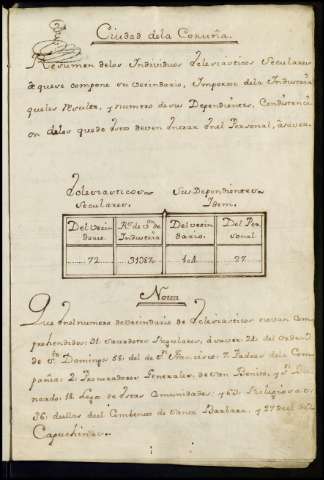 Ciudad de la Coruña.
Resumen de los Individuos Eclesiasticos Seculares
de que se compone su Vecindario, Importe de la Industria
que les Resulta, y numero de sus Dependientes, con distinci
on de los que de estos deven entrar en el Personal, a saver.
Eclesiasticos Seculares.
Sus Dependientes Idem.
Del vecin dario.
Rs. de Vn. de Industria
Del vecin dario.
Del Per sonal
72
104
27
Nota
Que en el numero de vecindario de Eclesiasticos no van com
prehendidos 91 Sacerdotes Regulares, á saver 21 del orden de
Sto. Domingo 58 del de Sn. Francisco 7 Padres de la Com
pañia: 2 Procuradores Generales de San Benito, y Sn. Ber
nardo: 18 Legos de estas Comunidades; y 63 Religiosas:
36 de ellas del Combento de Santa Barbara, y 27 del de
Capuchinas.